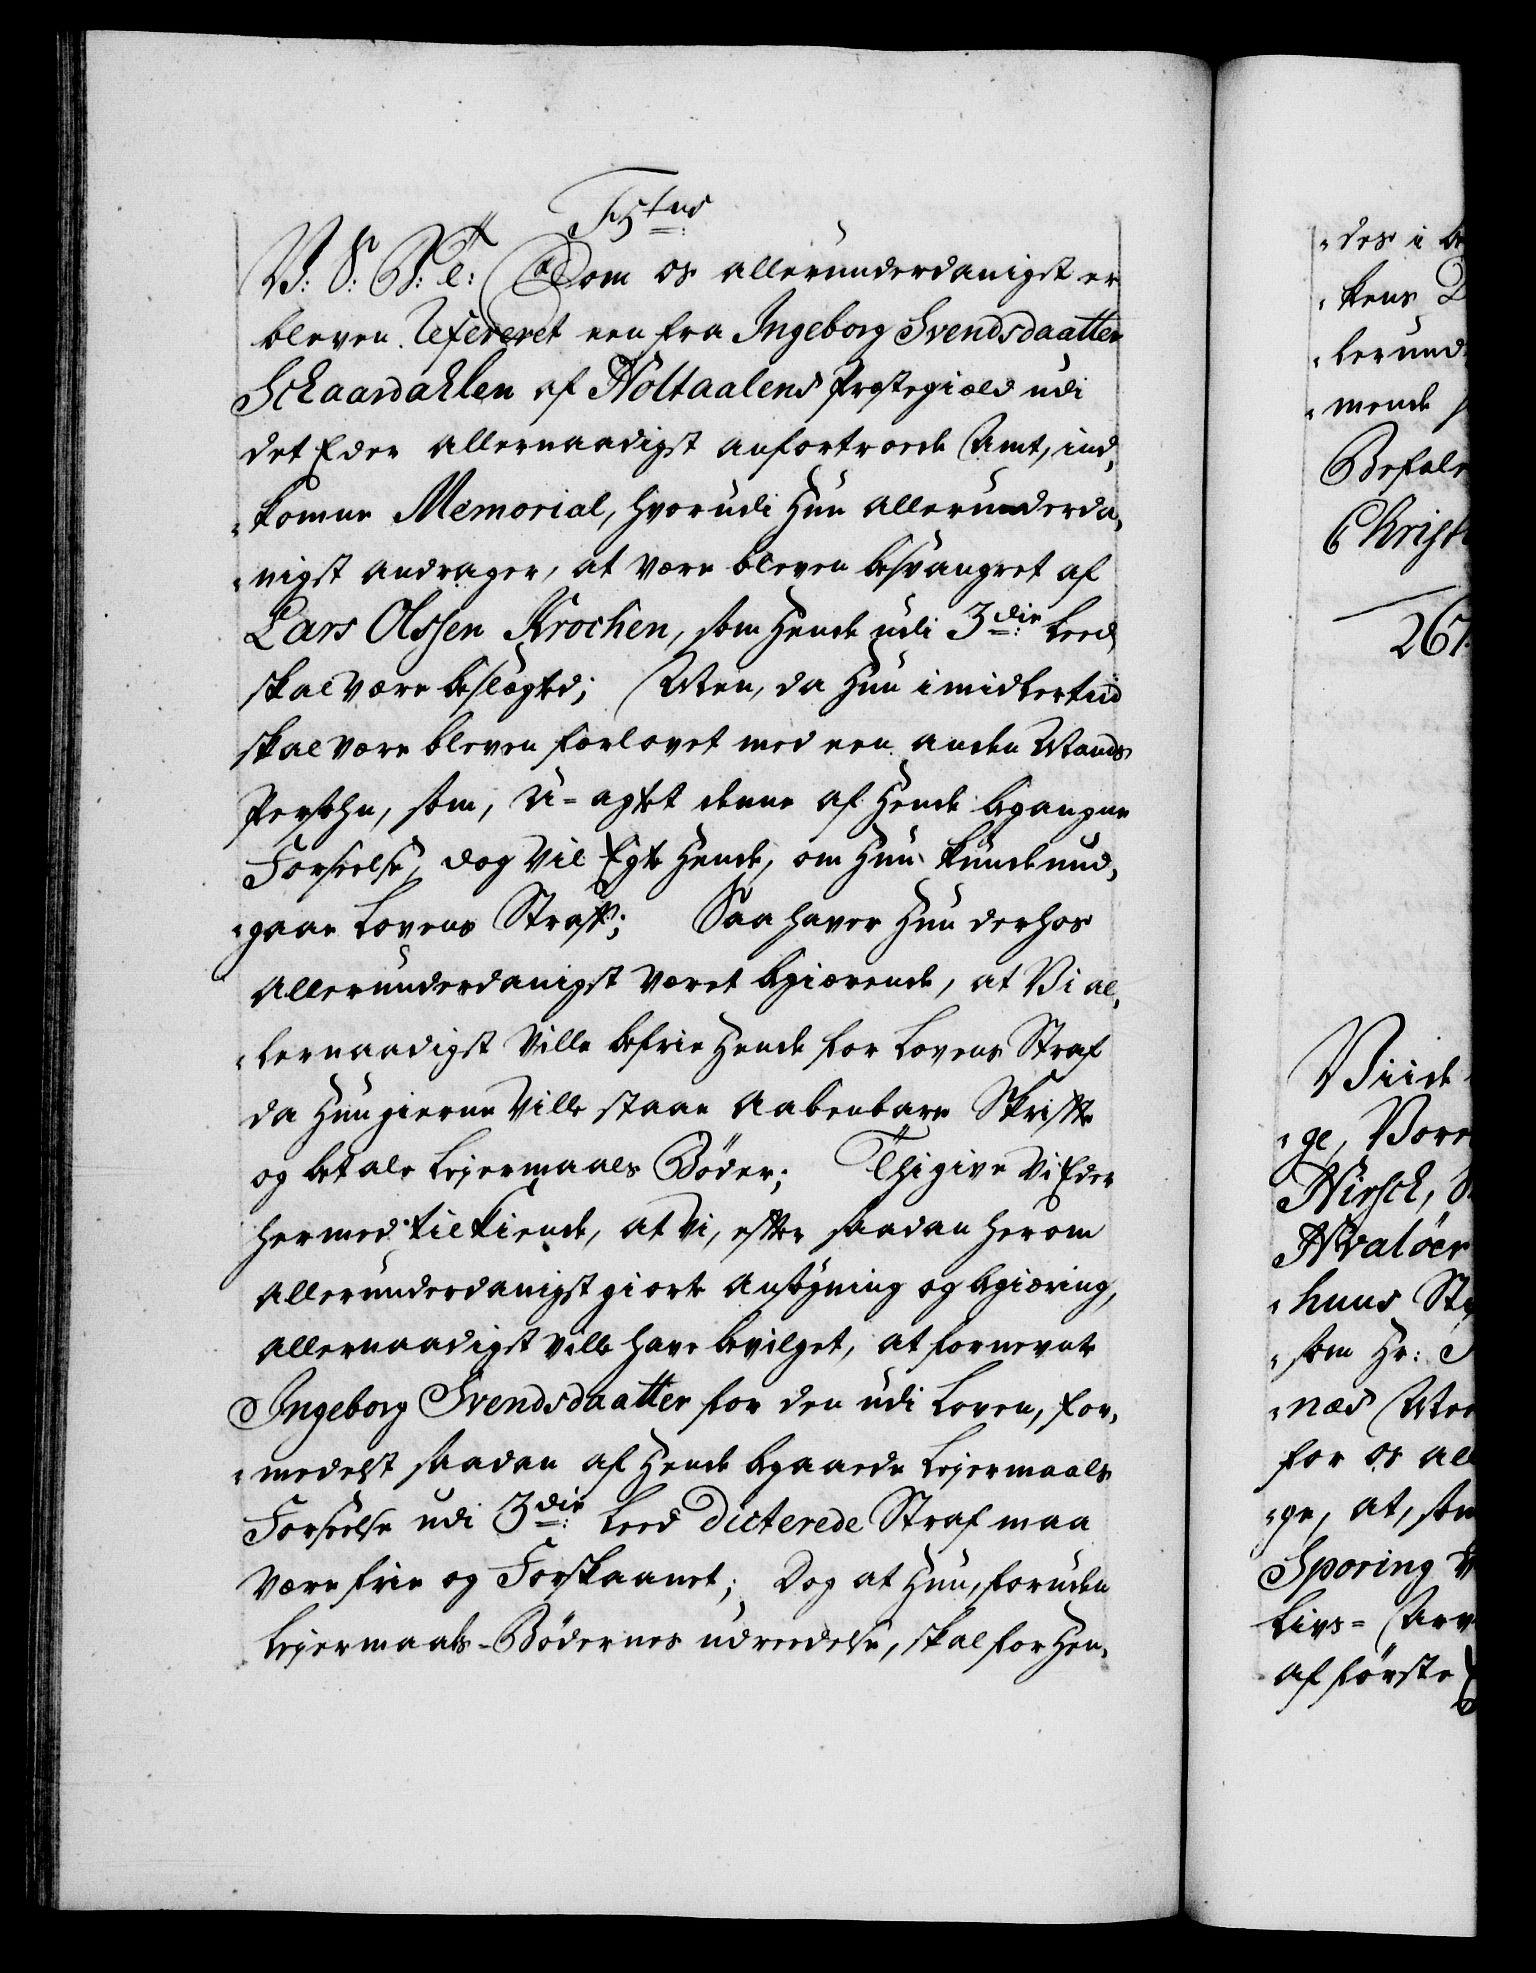 V: S: G: T: Som os allerunderdanigst er
bleven Refereret een fra Ingeborg Svendsdaatter
Schaardahlen af Holtaalens Præstegiæld udi
det Eder allernaadigst anfortroede Amt, ind,
„komne Memorial, hvorudi Hun allerunderda,
„nigst andrager, at være bleven besvangret af
Lars Olssen Krochen, som Hende udi 3die: Leed
skal være beslægted; Men, da Hun imidlertiid
skal være bleven forlovet med een anden Mands
Persohn, som, U-agtet denne af Hende begangne
Forseelse, dog vil Egte Hende, om Hun kunde und,
„gaae Lovens Straff; Saa haver Hun derhos
allerunderdanigst været begiærende, at Vi al,
„lernaadigst ville befrie Hende for Lovens Straf
da Hun gierne ville staae Aabenbare Skrifte
og betale Lejermaals Bøder; Thi give Vi Eder
hermed tilkiende, at Vi, efter saadan herom
allerunderdanigst giorte Ansøgning og begiæring,
allernaadigst ville have bevilget, at fornevnte
Ingeborg Svendsdaatter for den udi Loven, for,
„medelst saadan af Hende begaaede Lejermaals
Forseelse udi 3die: Leed Dicterede Straf maa
være frie og Forskaanet; Dog at Hun, foruden
Lejermaals-Bødernes udreedelse, skal for Hen,
„des i
„kens
„lerund
„mende
Befale
Christ
267.
Viide
„ge, Vore
Hirsch,
Hvaløer
„huus
„som Hr:
„næs
for os all
„ge, at, som
Sporing
Livs-Arv
af første